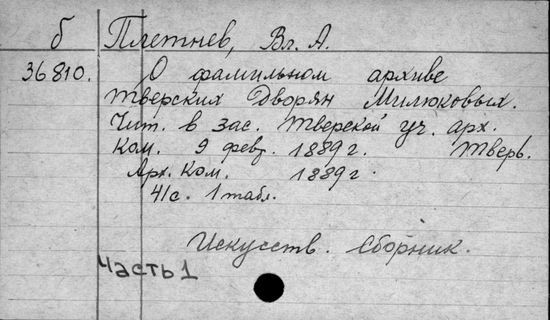 б Плетнев, Вл. А.
36810. О фамильном архиве
тверских Дворян Милюковых.
Чит. в зас. тверской уч. арх.
ком. 9 февр. 1889 г. Тверь.
Арх. Ком. 1889 г.
41 с. 1 табл.
Искусств. Сборник.
Часть 1